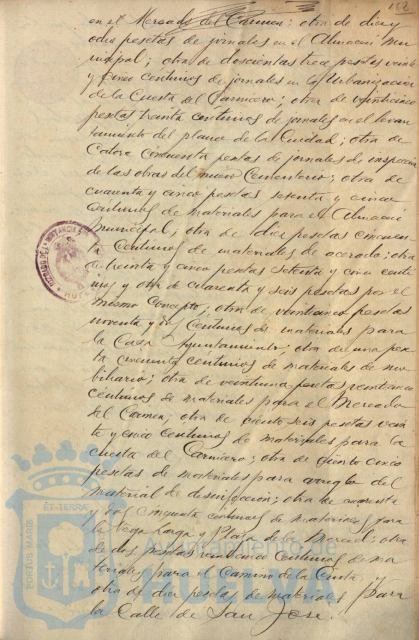 152
en el Mercado del Carmen; otra de diez y
ocho pesetas de jornales en el Almacen Mu-
nicipal; otra de doscientas trece pesetas veinte
y cinco centimos de jornales en la Urbanización
de la Cuesta del Carnicero; otra de veinticinco
pesetas treinta centimos de jornales en el levan-
tamiento del plano de la Ciudad; otra de
catorce cincuenta pesetas de jornales de inspección
de las obras del nuevo Cementerio; otra de
cuarenta y cinco pesetas setenta y cinco
centimos de materiales para el Almacen
Municipal; otra de diez pesetas cincuen-
ta centimos de materiales de acerado; otra
de treinta y cinco pesetas setenta y cinco centi-
mos y otra de cuarenta y seis pesetas por el
mismo concepto; otra de veinticinco pesetas
noventa y centimos de materiales para
la Casa Ayuntamiento; otra de una pese-
ta cincuenta centimos de materiales de mo-
biliario; otra de veintiuna pesetas veinticinco
centimos de materiales para el Mercado
del Carmen; otra de ciento seis pesetas vein-
te y cinco centimos de materiales para la
cuesta del Carnicero; otra de ciento cinco
pesetas de materiales para arreglo del
material de desinfección; otra de cuarenta
y dos cincuenta centimos de materiales para
la Vega Larga y Plaza de la Merced; otra
de dos pesetas centimos de ma-
teriales para el Camino de la Cinta, y
otra de diez pesetas de materiales para
la Calle de San José.
JUZGADO DE 1ª INSTANCIA
PORTUS MARIS
ET TERRA
Ayuntamiento de
HUELVA